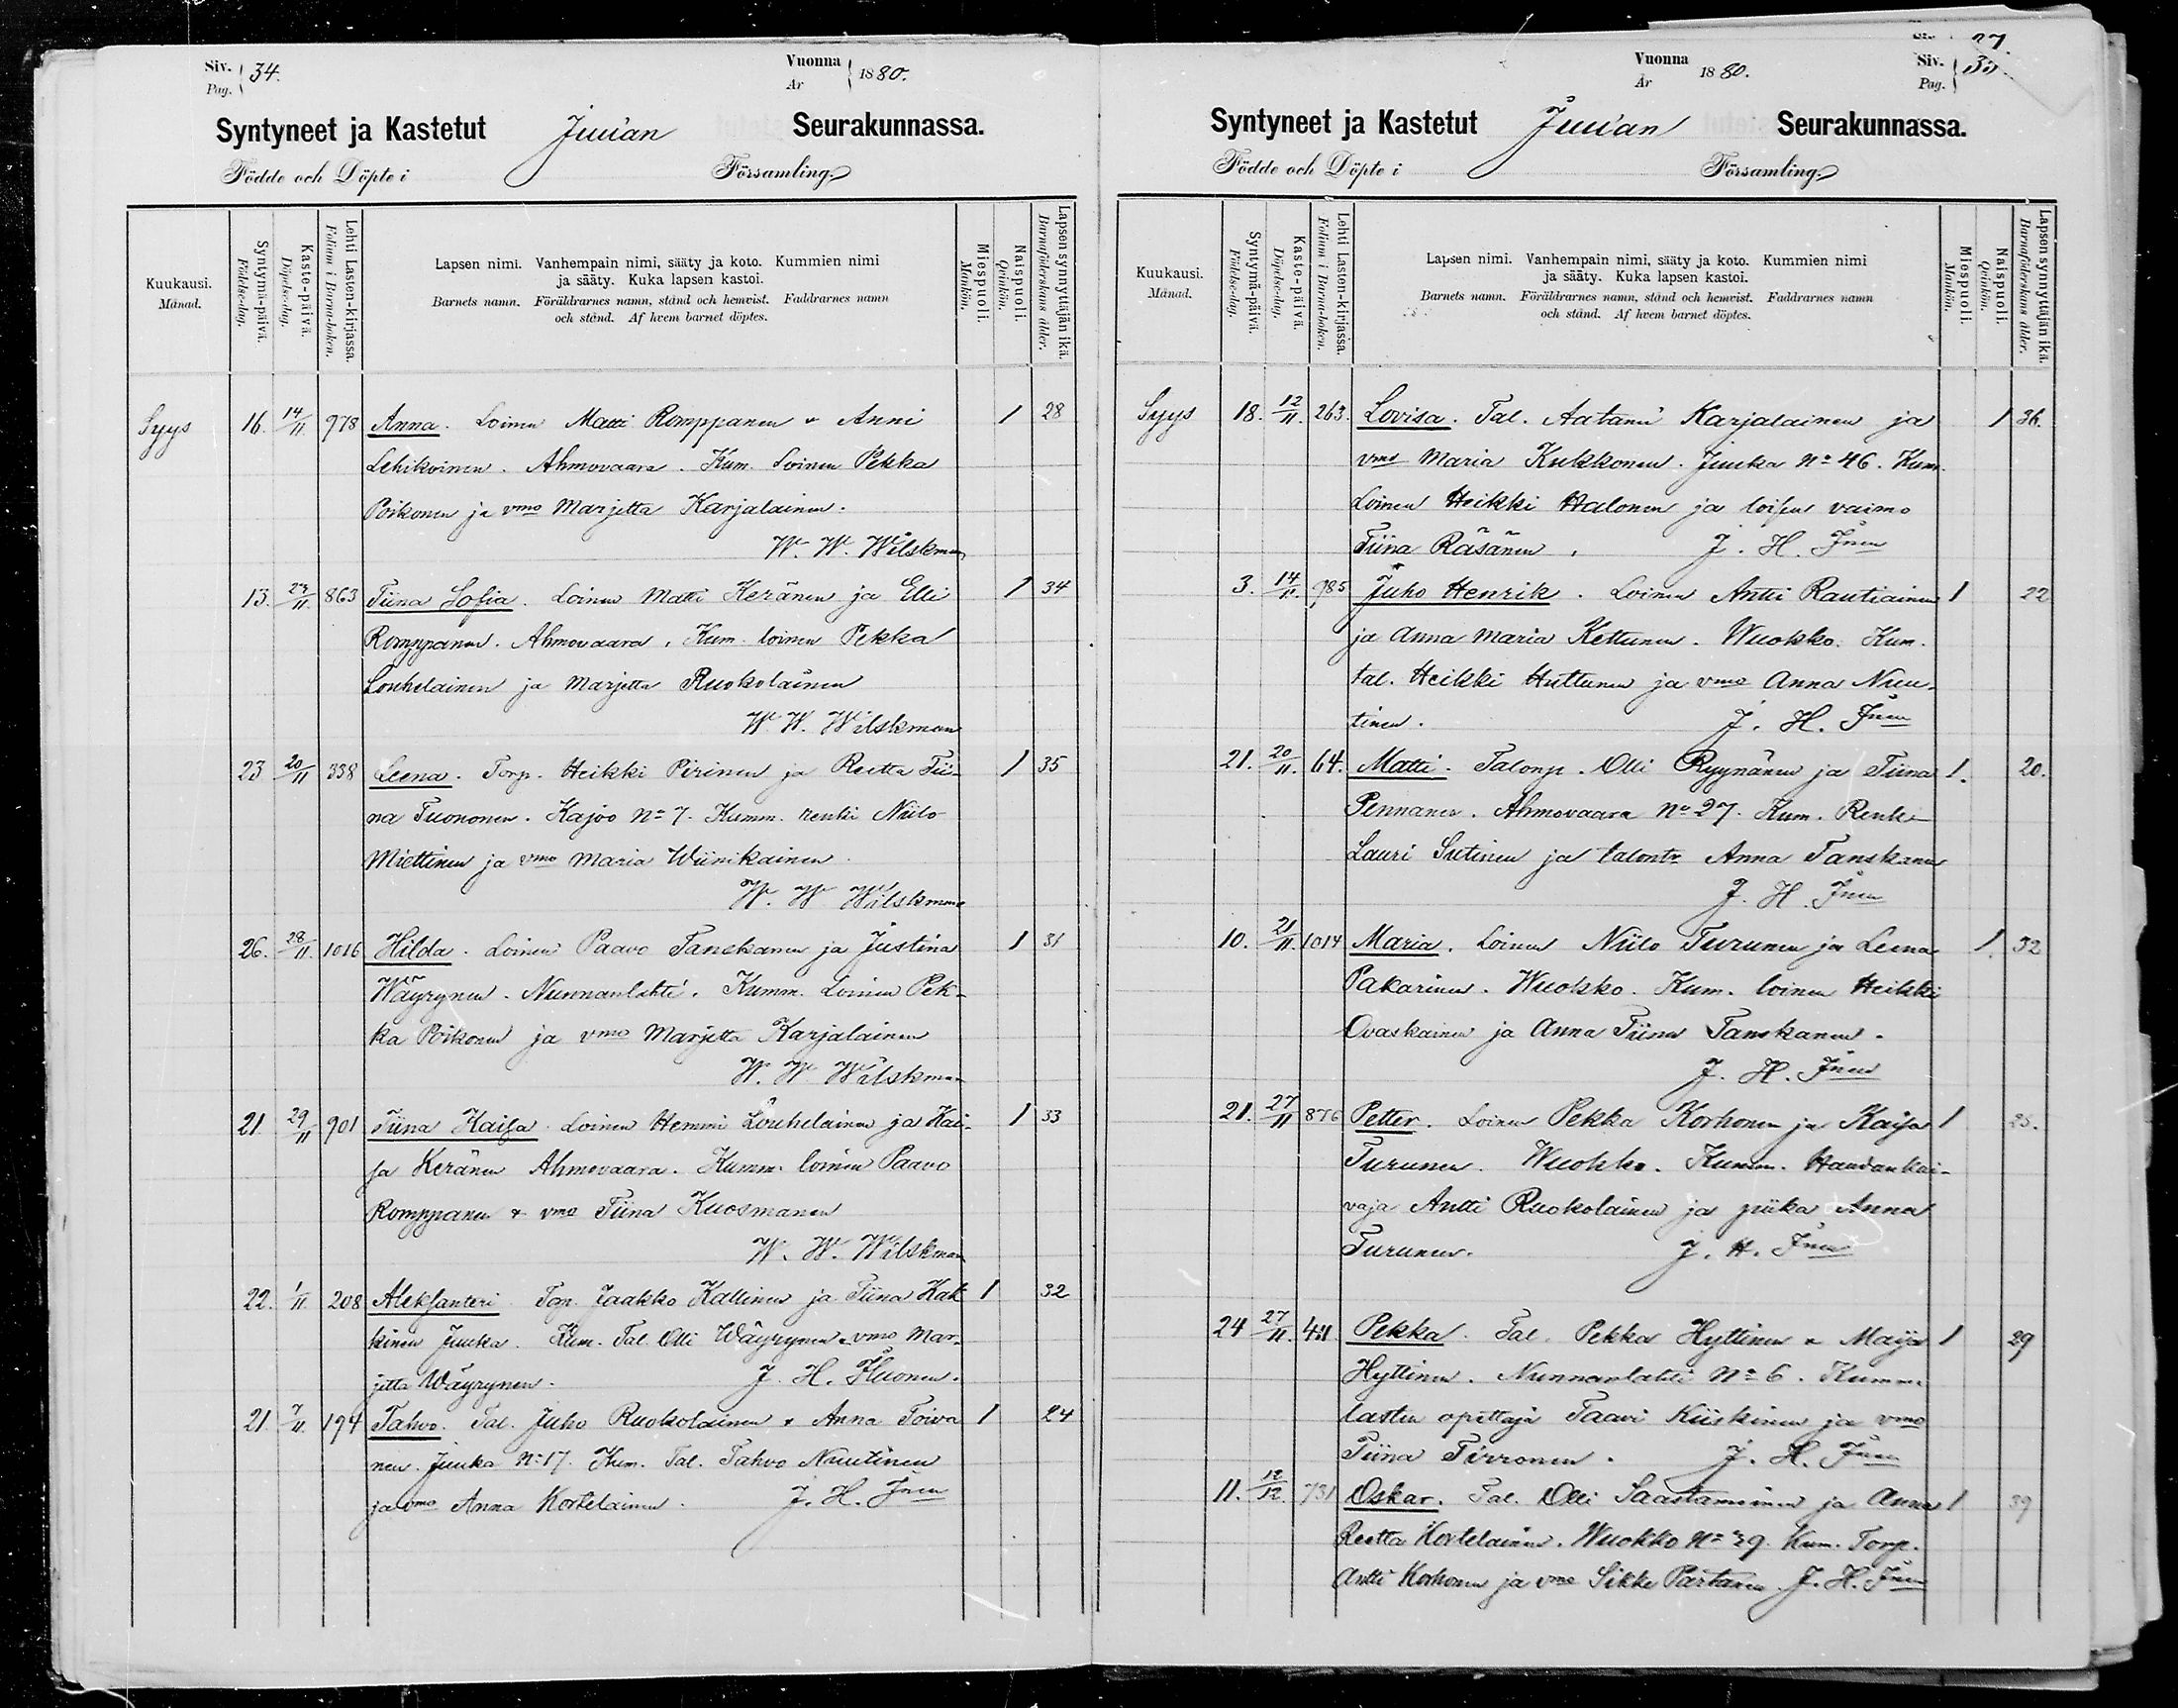 Siv. 34.
Pag.
Vuonna 1880.
År
Syntyneet ja Kastetut Juuan Seurakunnassa.
Födde och Döpte i Församling.
Kuukausi. Månad.
Syntymä-päivä. Födelse-dag.
Kaste-päivä. Döpelse-dag.
Lehti Lasten-kirjassa. Folium i Barna-boken.
Lapsen nimi. Vanhempain nimi, sääty ja koto. Kummien nimi
ja sääty. Kuka lapsen kastoi.
Barnets namn. Föräldrarnes namn, stånd och hemvist. Faddrarnes namn
och stånd. Af hvem barnet döptes.
Miespuoli. Mankön.
Naispuoli. Qvinkön.
Lapsen synnyttäjän ikä. Barnaföderskans ålder.
Syys 16. 14/11. 978 Anna. Loinen Matti Romppanen & Anni 1 28
Lehikoinen. Ahmovaara. Kum. Loinen Pekka
Poikonen ja vmo Marjetta Karjalainen.
W. W. Wilskman
13. 23/11. 863 Tiina Sofia. Loinen Matti Keränen ja Elli 1 34
Romppanen. Ahmovaara. Kum. loinen Pekka
Louhelainen ja Marjetta Ruokolainen
W. W. Wilskman
23 20/11 338 Leena. Torp. Heikki Pirinen ja Reetta Tii- 1 35
na Tuononen. Kajoo No 7. Kumm. renki Niilo
Miettinen ja vmo Maria Wiinikainen.
W. W Wilskman
26. 28/11. 1016 Hilda. Loinen Paavo Tanskanen ja Justina 1 31
Wäyrynen. Nunnanlahti. Kumm. Loinen Pek-
ka Poikonen ja vmo Marjetta Karjalainen
W. W. Wilskman
21 29/11 901 Tiina Kaisa. Loinen Hemmi Louhelainen ja Kai- 1 33
sa Keränen Ahmovaara. Kumm. loinen Paavo
Romppanen & vmo Tiina Kuosmanen
W. W. Wilskman
22. 1/11. 208 Aleksanteri Tal. Jaakko Kallinen ja Tiina Hak 1 32
kinen Juuka. Kum. Tal. Olli Wäyrynen & vmo Mar-
jetta Wäyrynen. J. H.
21. 7/11. 194 Tahvo. Tal. Juho Ruokolainen & Anna Toiva 1 24
nen. Juuka No 17. Kum. Tal. Tahvo Nuutinen
ja vmo Anna Kortelainen. J. H.
Siv. 35.
Pag.
Vuonna 1880.
År
Syntyneet ja Kastetut Juuan Seurakunnassa.
Födde och Döpte i Församling.
Kuukausi. Månad.
Syntymä-päivä. Födelse-dag.
Kaste-päivä. Döpelse-dag.
Lehti Lasten-kirjassa. Folium i Barna-boken.
Lapsen nimi. Vanhempain nimi, sääty ja koto. Kummien nimi
ja sääty. Kuka lapsen kastoi.
Barnets namn. Föräldrarnes namn, stånd och hemvist. Faddrarnes namn
och stånd. Af hvem barnet döptes.
Miespuoli. Mankön.
Naispuoli. Qvinkön.
Lapsen synnyttäjän ikä. Barnaföderskans ålder.
Syys 18. 12/11. 263. Lovisa. Tal. Aatami Karjalainen ja 1 36.
vmo Maria Kukkonen. Juuka No 46. Kum.
Loinen Heikki Halonen ja loisen vaimo
Tiina Räsänen. J. H.
3. 14/11. 985 Juho Henrik. Loinen Antti Rautiainen 1 22
ja Anna Maria Kettunen. Wuokko. Kum.
tal. Heikki Huttunen ja vmo Anna Nuu-
tinen. J. H.
21. 20/11. 64. Matti. Talonp. Olli Ryynänen ja Tiina 1. 20.
Pennanen. Ahmovaara No 27. Kum. Renki
Lauri Sutinen ja talontr Anna Tanskanen
J. H.
10. 21/11. 1014 Maria. Loinen Niilo Turunen ja Leena 1. 32
Pakarinen. Wuokko. Kum. loinen Heikki
Ovaskainen ja Anna Tiina Tanskanen.
J. H.
21. 27/11 876 Petter. Loinen Pekka Korhonen ja Kaisa 1 25.
Turunen. Wuokko. Kumm. Haudankai-
vaja Antti Ruokolainen ja piika Anna
Turunen. J. H.
24 27/11. Pekka. Tal. Pekka Hyttinen & Maija 1 29
Hyttinen. Nunnanlahti No 6. Kumm.
lasten opettaja Taavi Kiiskinen ja vmo
Tiina Tirronen. J. H.
11. 12/12. 731 Oskar. Tal. Olli Saastamoinen ja Anna 1 39
Reetta Kortelainen. Wuokko No 39. Kum. Torp.
Antti Korhonen ja vmo Sikke Partanen. J. H.